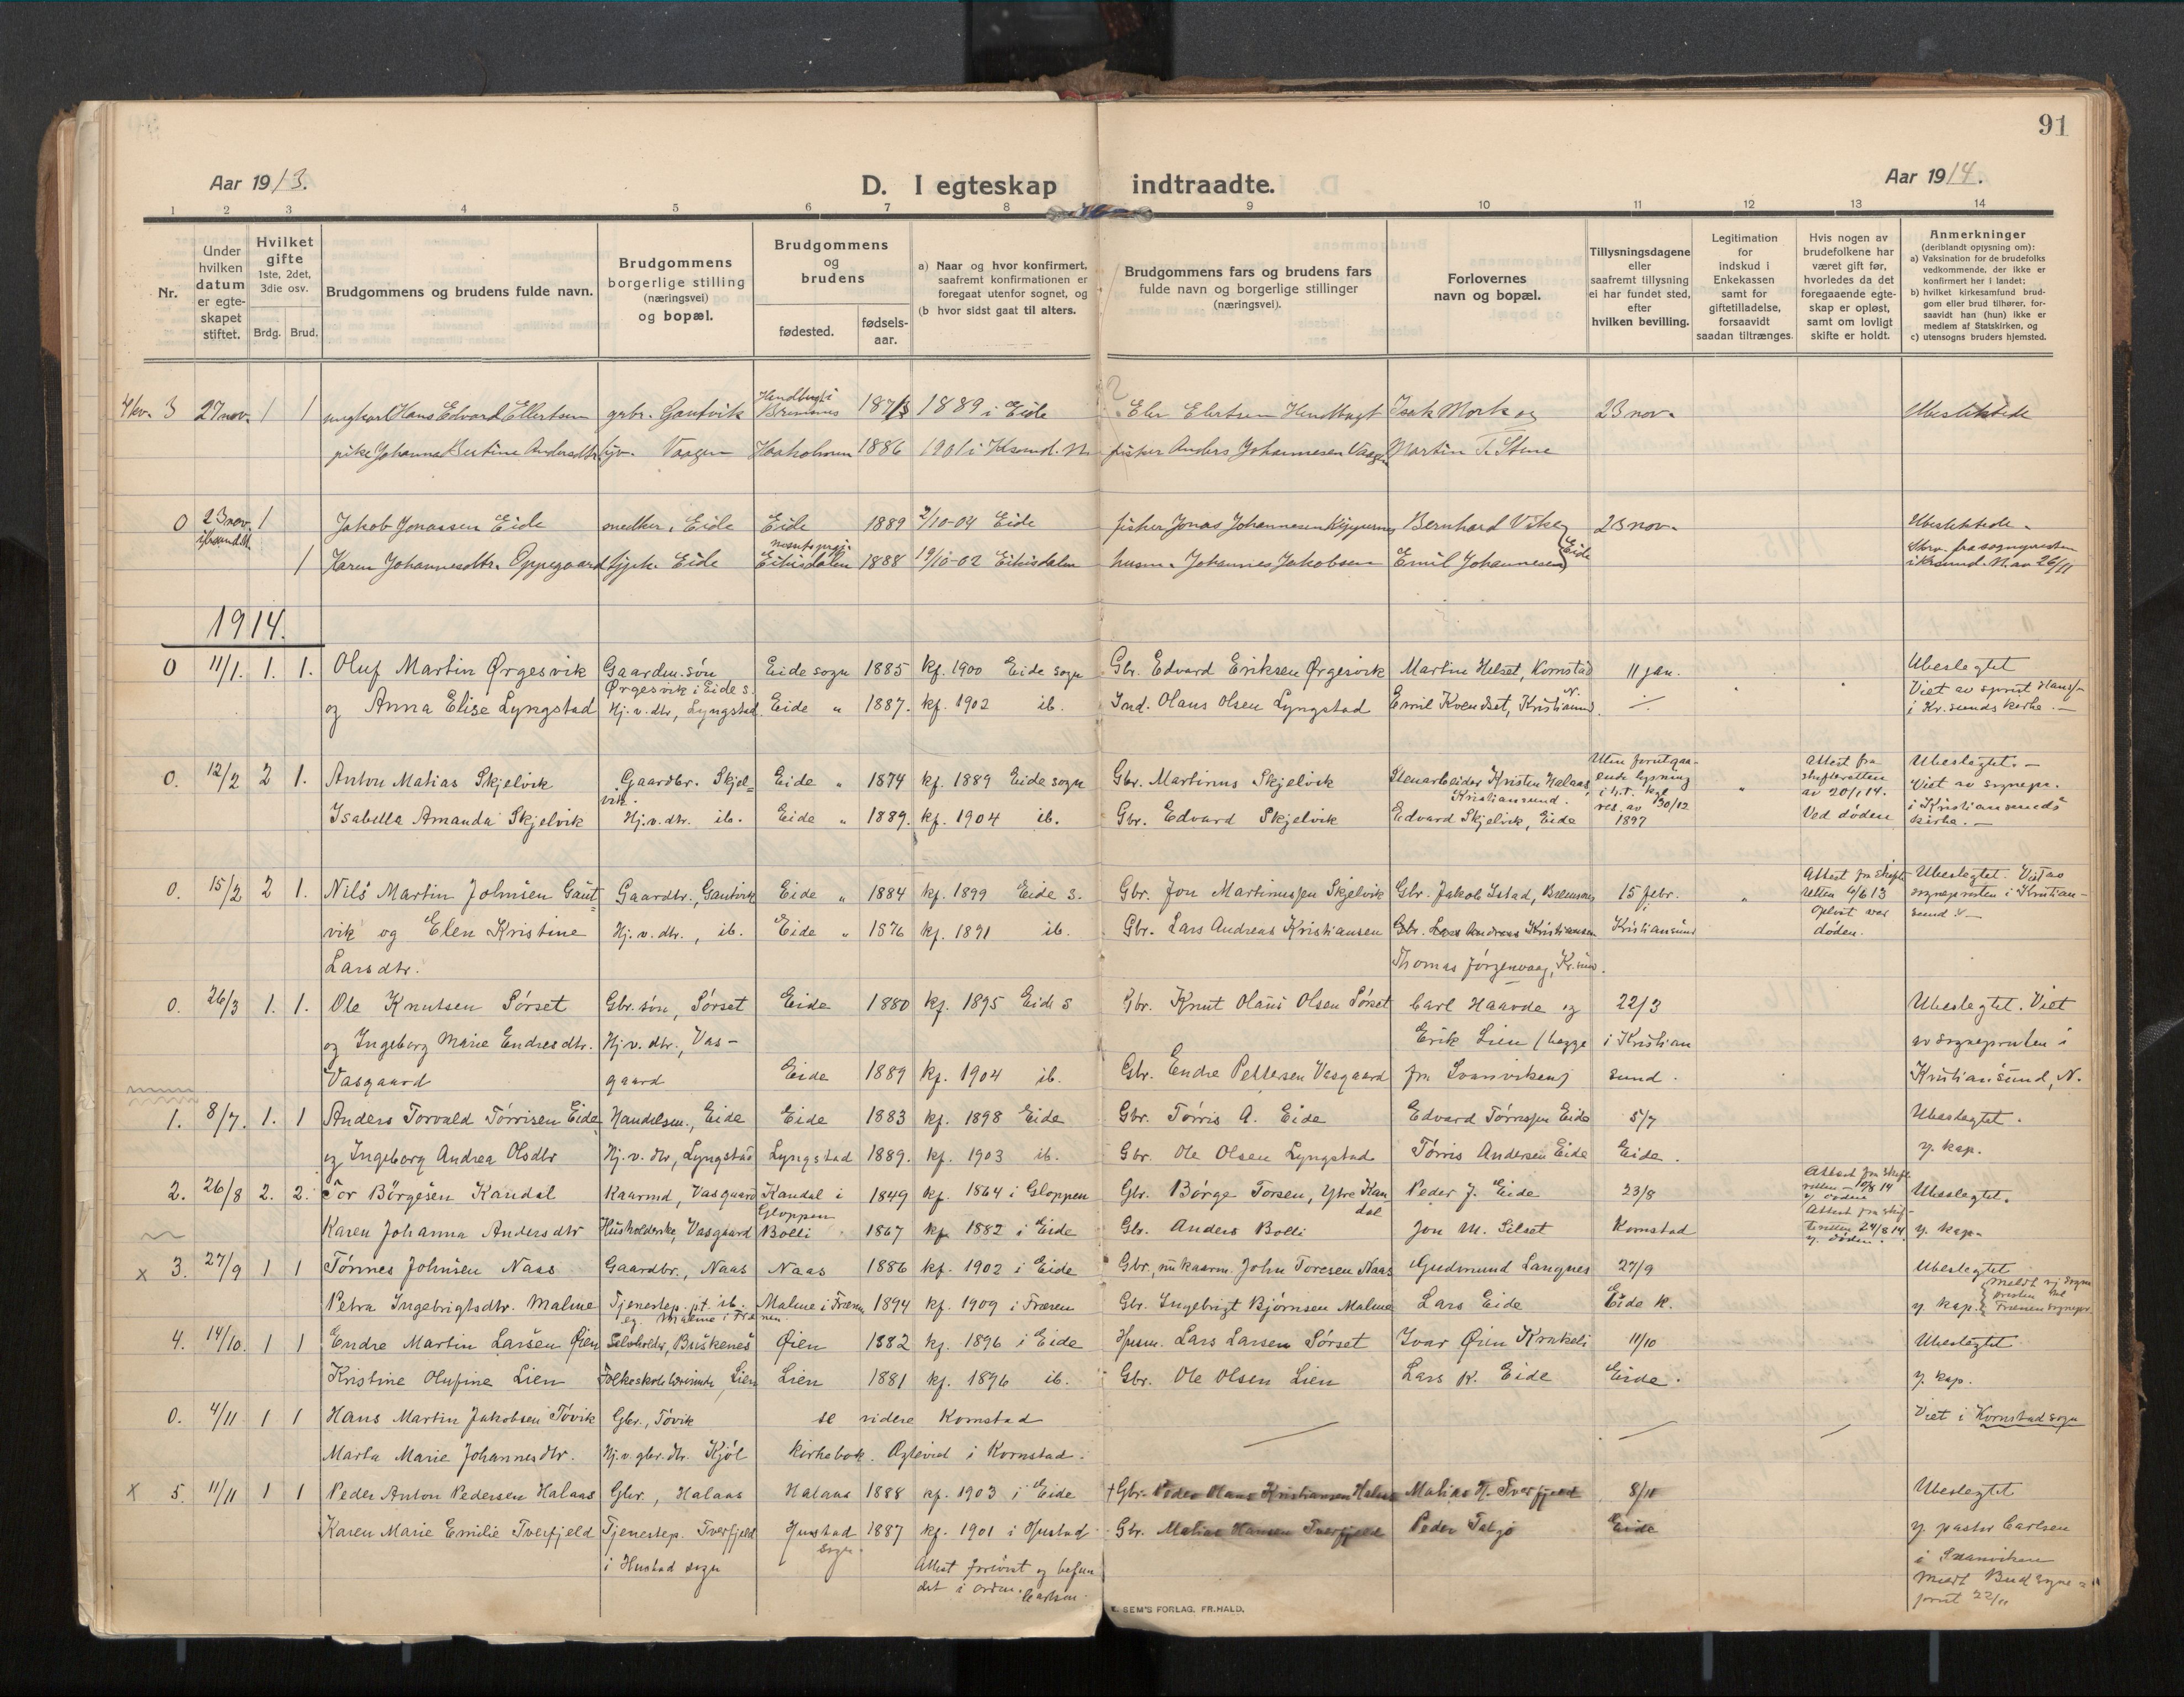 91
Aar 1913.
D. I egteskap indtraadte.
Aar 1914.
1 2 3 4 5 6 7 8 9 10 11 12 13 14
Nr.
Under hvilken datum er egteskapet stiftet.
Hvilket gifte 1ste, 2det, 3die osv.
Brdg. Brud.
Brudgommens og brudens fulde navn.
Brudgommens borgerlige stilling (næringsvei) og bopæl.
Brudgommens og brudens
fødested.
fødsels-aar.
a) Naar og hvor konfirmert, saafremt konfirmationen er foregaat utenfor sognet, og
(b hvor sidst gaat til alters.
Brudgommens fars og brudens fars fulde navn og borgerlige stillinger (næringsvei).
Forlovernes navn og bopæl.
Tillysningsdagene eller saafremt tillysning ei har fundet sted, efter hvilken bevilling.
Legitimation for indskud i Enkekassen samt for giftetilladelse, forsaavidt saadan tiltrænges.
Hvis nogen av brudefolkene har været gift før, hvorledes da det foregaaende egteskap er opløst, samt om lovligt skifte er holdt.
Anmerkninger (deriblandt opjysning om):
a) Vaksination for de brudefolks vedkommende, der ikke er konfirmert her i landet;
b) hvilket kirkesamfund brudgom eller brud tilhører, forsaavidt han (hun) ikke er medlem af Statskirken, og
c) utensogns bruders hjemsted.
3 27 nov. 1 1 ungkarl Hans Edvard Ellertsen gbr. Gautvik Bremnes 1889 i Eide 23 nov. Ubeslektede
pike Johanna Bertine Andersdtr. Vaagen Haaholmen 1886 1901 i Ksund. N. fisker Anders Johannesen Vaagen Martin T. Stene
0 23 nov. 1 Jakob Jonassen Eide snedker, Eide Eide 1889 2/10-04 Eide fisker Jonas Johannesen Bernhard Vike 23 nov. Ubeslektede.
1 Karen Johannesdtr. Oppegaard Eide Eikisdalen 1888 19/10-02 Eikisdalen husm. Johannes Jakobsen Emil Johannesen Eide Skrv. fra sognepresten i Krsund. N. av 26/11
1914.
0 11/1. 1. 1. Oluf Martin Ørgesvik Gaardm. søn Eide sogn 1885 kf. 1900 Eide sogn Gbr. Edvard Eriksen Ørgesvik Martin Helset, Kornstad 11 jan. Ubeslegtet
Ørgesvik i Eide s.
og Anna Elise Lyngstad Hj. v. dtr, Lyngstad. Eide " 1887. kf. 1902 ib. Ind. Olaus Olsen Lyngstad Emil Kvendset, Kristiansund N. Viet av sprst Hans/- i Kr. sunds kirke. -
0. 12/2 2 1. Anton Matias Skjelvik Gaardbr. Skjelvik. Eide " 1874 kf. 1889 Eide sogn Gbr. Martinus Skjelvik Stenarbeider Kristen Helaas, Kristiansund. Uten forutgaaende lysning i h.t. kgl. res. av 30/12 1897 " Attest fra skifteretten av 20/1 14. Ved døden Ubeslegtet. - Viet av sognepr. i Kristiansunds kirke. -
Isabella Amanda Skjelvik Hj. v. dtr. ib. Eide " 1889. kf. 1904 ib. Gbr. Edvard Skjelvik Edvard Skjelvik, Eide
0. 15/2 2 1. Nils Martin Johnsen Gaut- Gaardbr., Gautvik Eide " 1884 kf. 1899 Eide s. Gbr. Jon Martinussen Skjelvik Gbr. Jakob Istad, Bremsnes 15 febr. " Attest fra skifteretten 4/6 13 Ubeslegtet. Viet av sognepresten i Kristian-
vik og Elen Kristine Hj. v. dtr., ib. Eide " 1876 kf. 1891 ib. Gbr. Lars Andreas Kristiansen Gbr. Lars Andreas Kristiansen i Kristiansund Opløst ved døden. sund. -
Larsdtr. Thomas Jørgenvaag, Kr.sun.
0. 26/3 1. 1. Ole Knutsen Sørset Gbr. søn, Sørset Eide 1880 kf. 1895 Eide s Gbr. Knut Olaus Olsen Sørset Carl Haavde og 22/3 Ubeslegtet. Viet
og Ingeborg Marie Endresdtr. Hj. v. dtr., Vas- Erik Lien (begge i Kristian av sognepresten i
Vasgaard gaard Eide 1889 kf. 1904 ib. Gbr. Endre Pettersen Vasgaard fra Svanviken) sund. Kristiansund, N.
1. 8/7. 1. 1 Anders Torvald Tørrisen Eide Handelsm., Eide Eide 1883 kf. 1898 Eide Gbr. Tørris A. Eide Edvard Tørrissen Eide 5/7 Ubeslegtet.
og Ingeborg Andrea Olsdtr Hj. v. dtr, Lyngstad Lyngstad 1889. kf. 1903 ib. Gbr. Ole Olsen Lyngstad Tørris Andersen Eide Eide. y. kap.
2. 26/8 2. 2. Tor Børgesen Kandal Kaarmd, Vasgaard Kandal i Gloppen 1849 kf. 1864 i Gloppen Gbr. Børge Torsen, Ytre Kandal Peder J. Eide 23/8 Attest fra skifteretten 19/8 14 v. døden Ubeslegtet.
Karen Johanna Andersdtr Husholderske, Vasgaard Bolli 1867 kf 1882 i Eide Gbr. Anders Bolli Jon M. Silset Kornstad Attest fra skifteretten 24/8 14. v. døden. y. kap.
x 3. 27/9 1 1 Tønnes Johnsen Naas Gaardbr., Naas Naas 1886 kf. 1902 i Eide Gbr., nu kaarm. John Toresen Naas Gudmund Langnes 27/9 Ubeslegtet
Petra Ingebrigtsdtr. Malme Tjenestep. pt. ib. Malme i Frænen 1894 kf. 1909 i Frænen Gbr. Ingebrigt Bjørnsen Malme Lars Eide Eide k. y. kap.
4. 14/10. 1 1 Endre Martin Larsen Øien Selvholder, Buskenes Øien 1882 kf. 1896 i Eide Husm. Lars Larsen Sørset Ivar Øien Krakeli 11/10 Ubeslegtet
Kristine Olufine Lien Folkeskolelærerinde, Lien Lien 1881 kf. 1896 ib. Gbr. Ole Olsen Lien Lars K. Eide Eide. y. kap.
0. 4/11 1 1 Hans Martin Jakobsen Tøvik Gbr., Tøvik se videre Kornstad Viet i Kornstad sogn
Marta Marie Johannesdtr. Hj. v. gbr. dtr. Kjøl kirkebok. Ogsaa i Kornstad.
x 5. 11/11 1 1 Peder Anton Pedersen Halaas Gbr, Halaas Halaas 1888 kf. 1903 i Eide † Gbr. Peder Olaus Kristiansen Halaas Matias H. Tverfjeld 8/11 Ubeslegtet
Karen Marie Emilie Tverfjeld Tjenestep. Tverfjeld i Hustad sogn Hustad sogn. 1887 kf. 1901 i Hustad. Gbr. Matias Hansen Tverfjeld Peder Talgø Eide y. pastor Carlsen i Svanviken
Attest forevist og befundet i orden. Carlsen. Meldt Bud sogneprest 22/11
E. SEM'S FORLAG. FR.HALD.